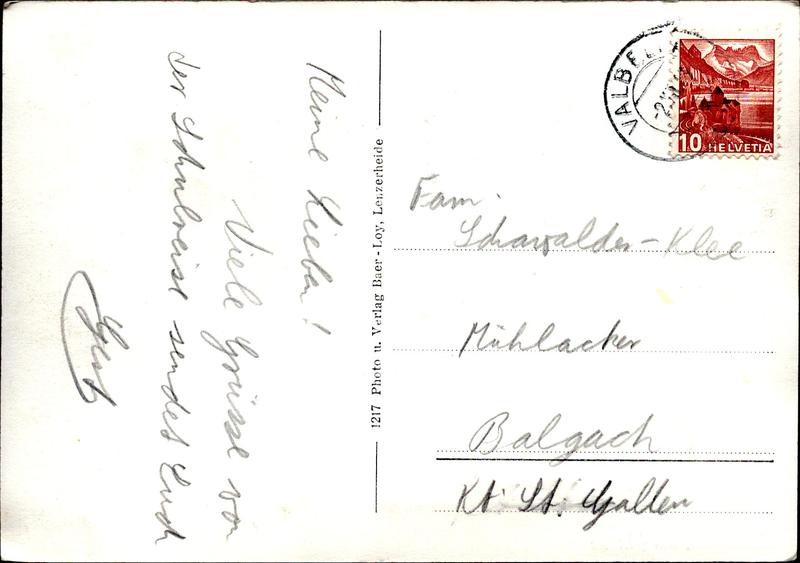 Meine Lieben!
Viele Grüsse von
der Schulreise sendet Euch
1217 Photo u. Verlag Baer-Loy, Lenzerheide
VALBE
10 HELVETIA
Fam.
Schawalder-Klee
Mühlacker
Balgach
Kt. St. Gallen